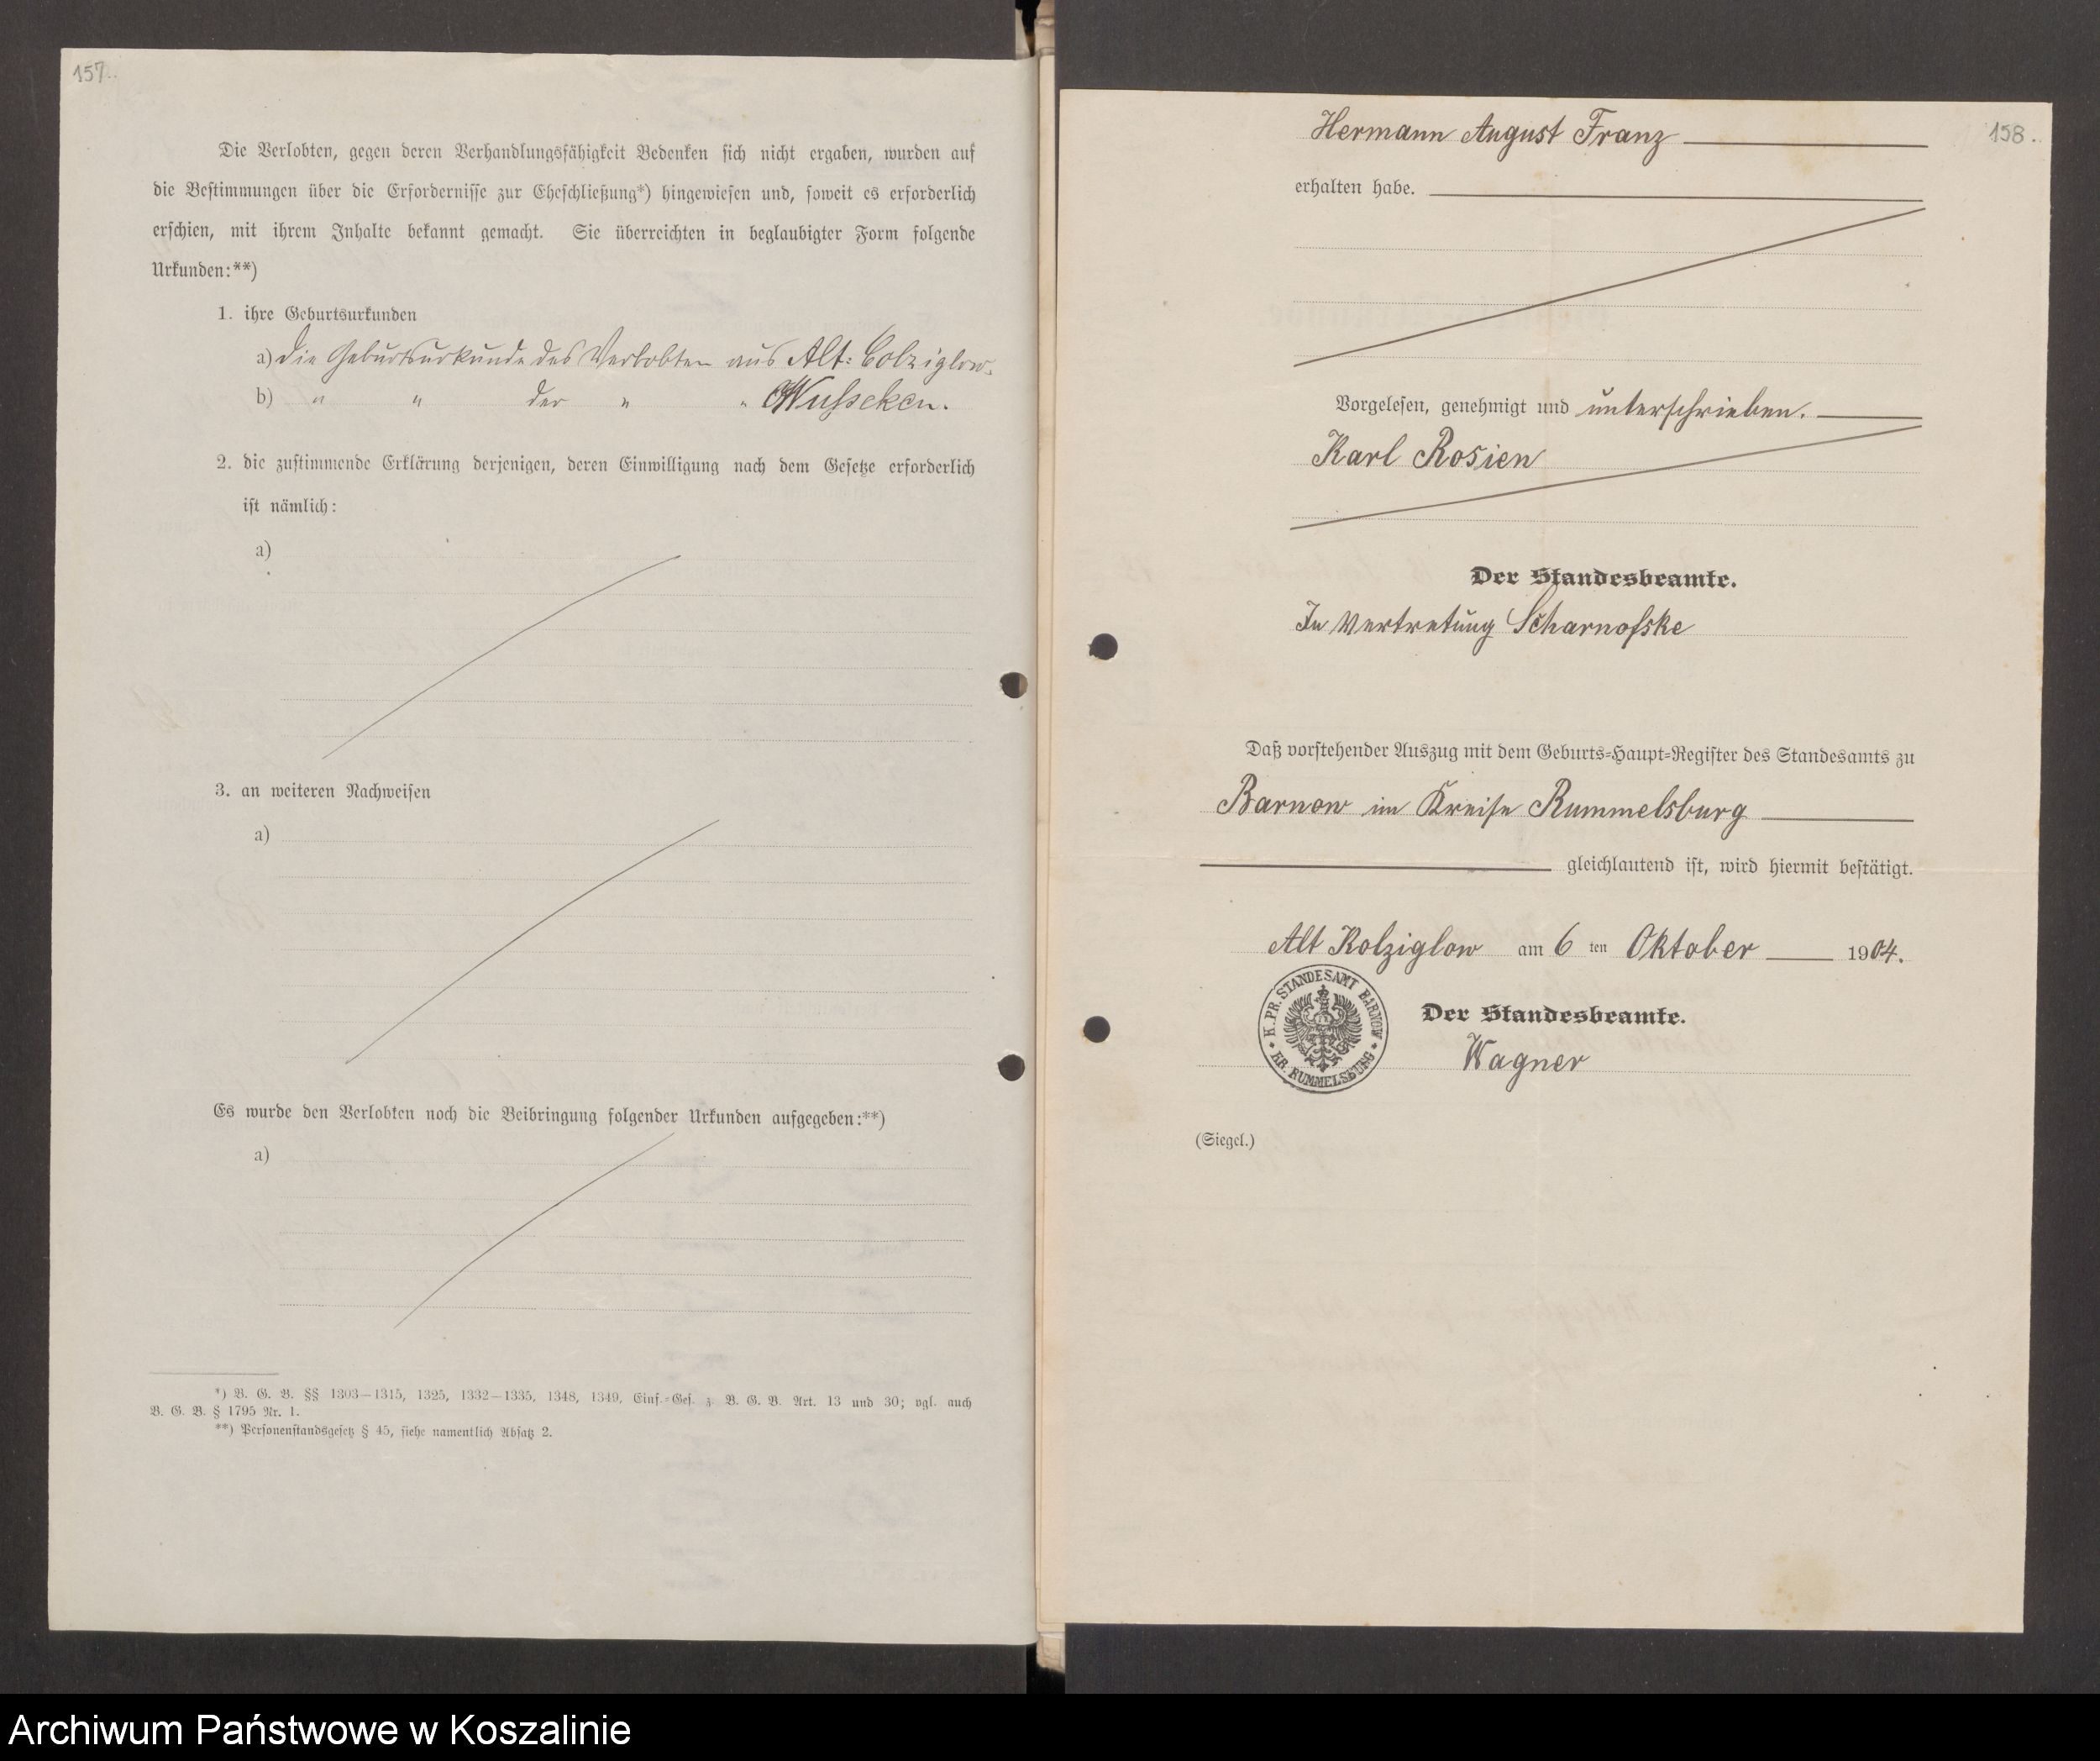 157.
Die Verlobten, gegen deren Verhandlungsfähigkeit Bedenken sich nicht ergaben, wurden auf
die Bestimmungen über die Erfordernisse zur Eheschließung*) hingewiesen und, soweit es erforderlich
erschien, mit ihrem Inhalte bekannt gemacht. Sie überreichten in beglaubigter Form folgende
Urkunden:**)
1. ihre Geburtsurkunden
a) die Geburtsurkunde des Verlobten aus Alt-Colziglow.
b) " " der " " Wusseken.
2. die zustimmende Erklärung derjenigen, deren Einwilligung nach dem Gesetze erforderlich
ist nämlich:
a)
3. an weiteren Nachweisen
a)
Es wurde den Verlobten noch die Beibringung folgender Urkunden aufgegeben:**)
a)
*) B. G. B. §§ 1303—1315, 1325, 1332—1335, 1348, 1349, Einf.-Ges. z. B. G. B. Art. 13 und 30; vgl. auch
B. G. B. § 1795 Nr. 1.
**) Personenstandsgesetz § 45, siehe namentlich Absatz 2.
158.
Hermann August Franz
erhalten habe.
Vorgelesen, genehmigt und unterschrieben.
Karl Rosien
Der Standesbeamte.
In Vertretung Scharnofske
Daß vorstehender Auszug mit dem Geburts-Haupt-Register des Standesamts zu
Barnow im Kreise Rummelsburg
gleichlautend ist, wird hiermit bestätigt.
Alt Kolziglow am 6 ten Oktober 1904.
K. PR. STANDESAMT BARNOW
KR. RUMMELSBURG
Der Standesbeamte.
Wagner
(Siegel.)
Archiwum Państwowe w Koszalinie